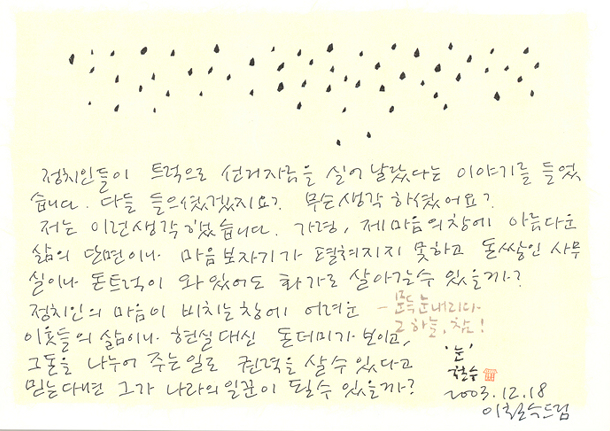 정치인들이 트럭으로 선거자금을 실어 날랐다는 이야기를 들었
습니다. 다들 들으셨겠지요? 무슨생각 하셨어요?
저는 이런생각 했습니다. 가령, 제마음의창에 아름다운
삶의 단면이나 마음보자기가 펼쳐지지 못하고 돈쌓인 사무
실이나 돈트럭이 와 있어도 화가로 살아갈수 있을까?
정치인의 마음이 비치는창에 어려운
이웃들의 삶이나 현실대신 돈더미가 보이고,
그돈을 나누어 주는일로 권력을 살수있다고
믿는다면 그가 나라의일꾼이 될수 있을까?
눈내리다
그하늘, 참!
'눈'
철수
2003.12.18
이철수드림